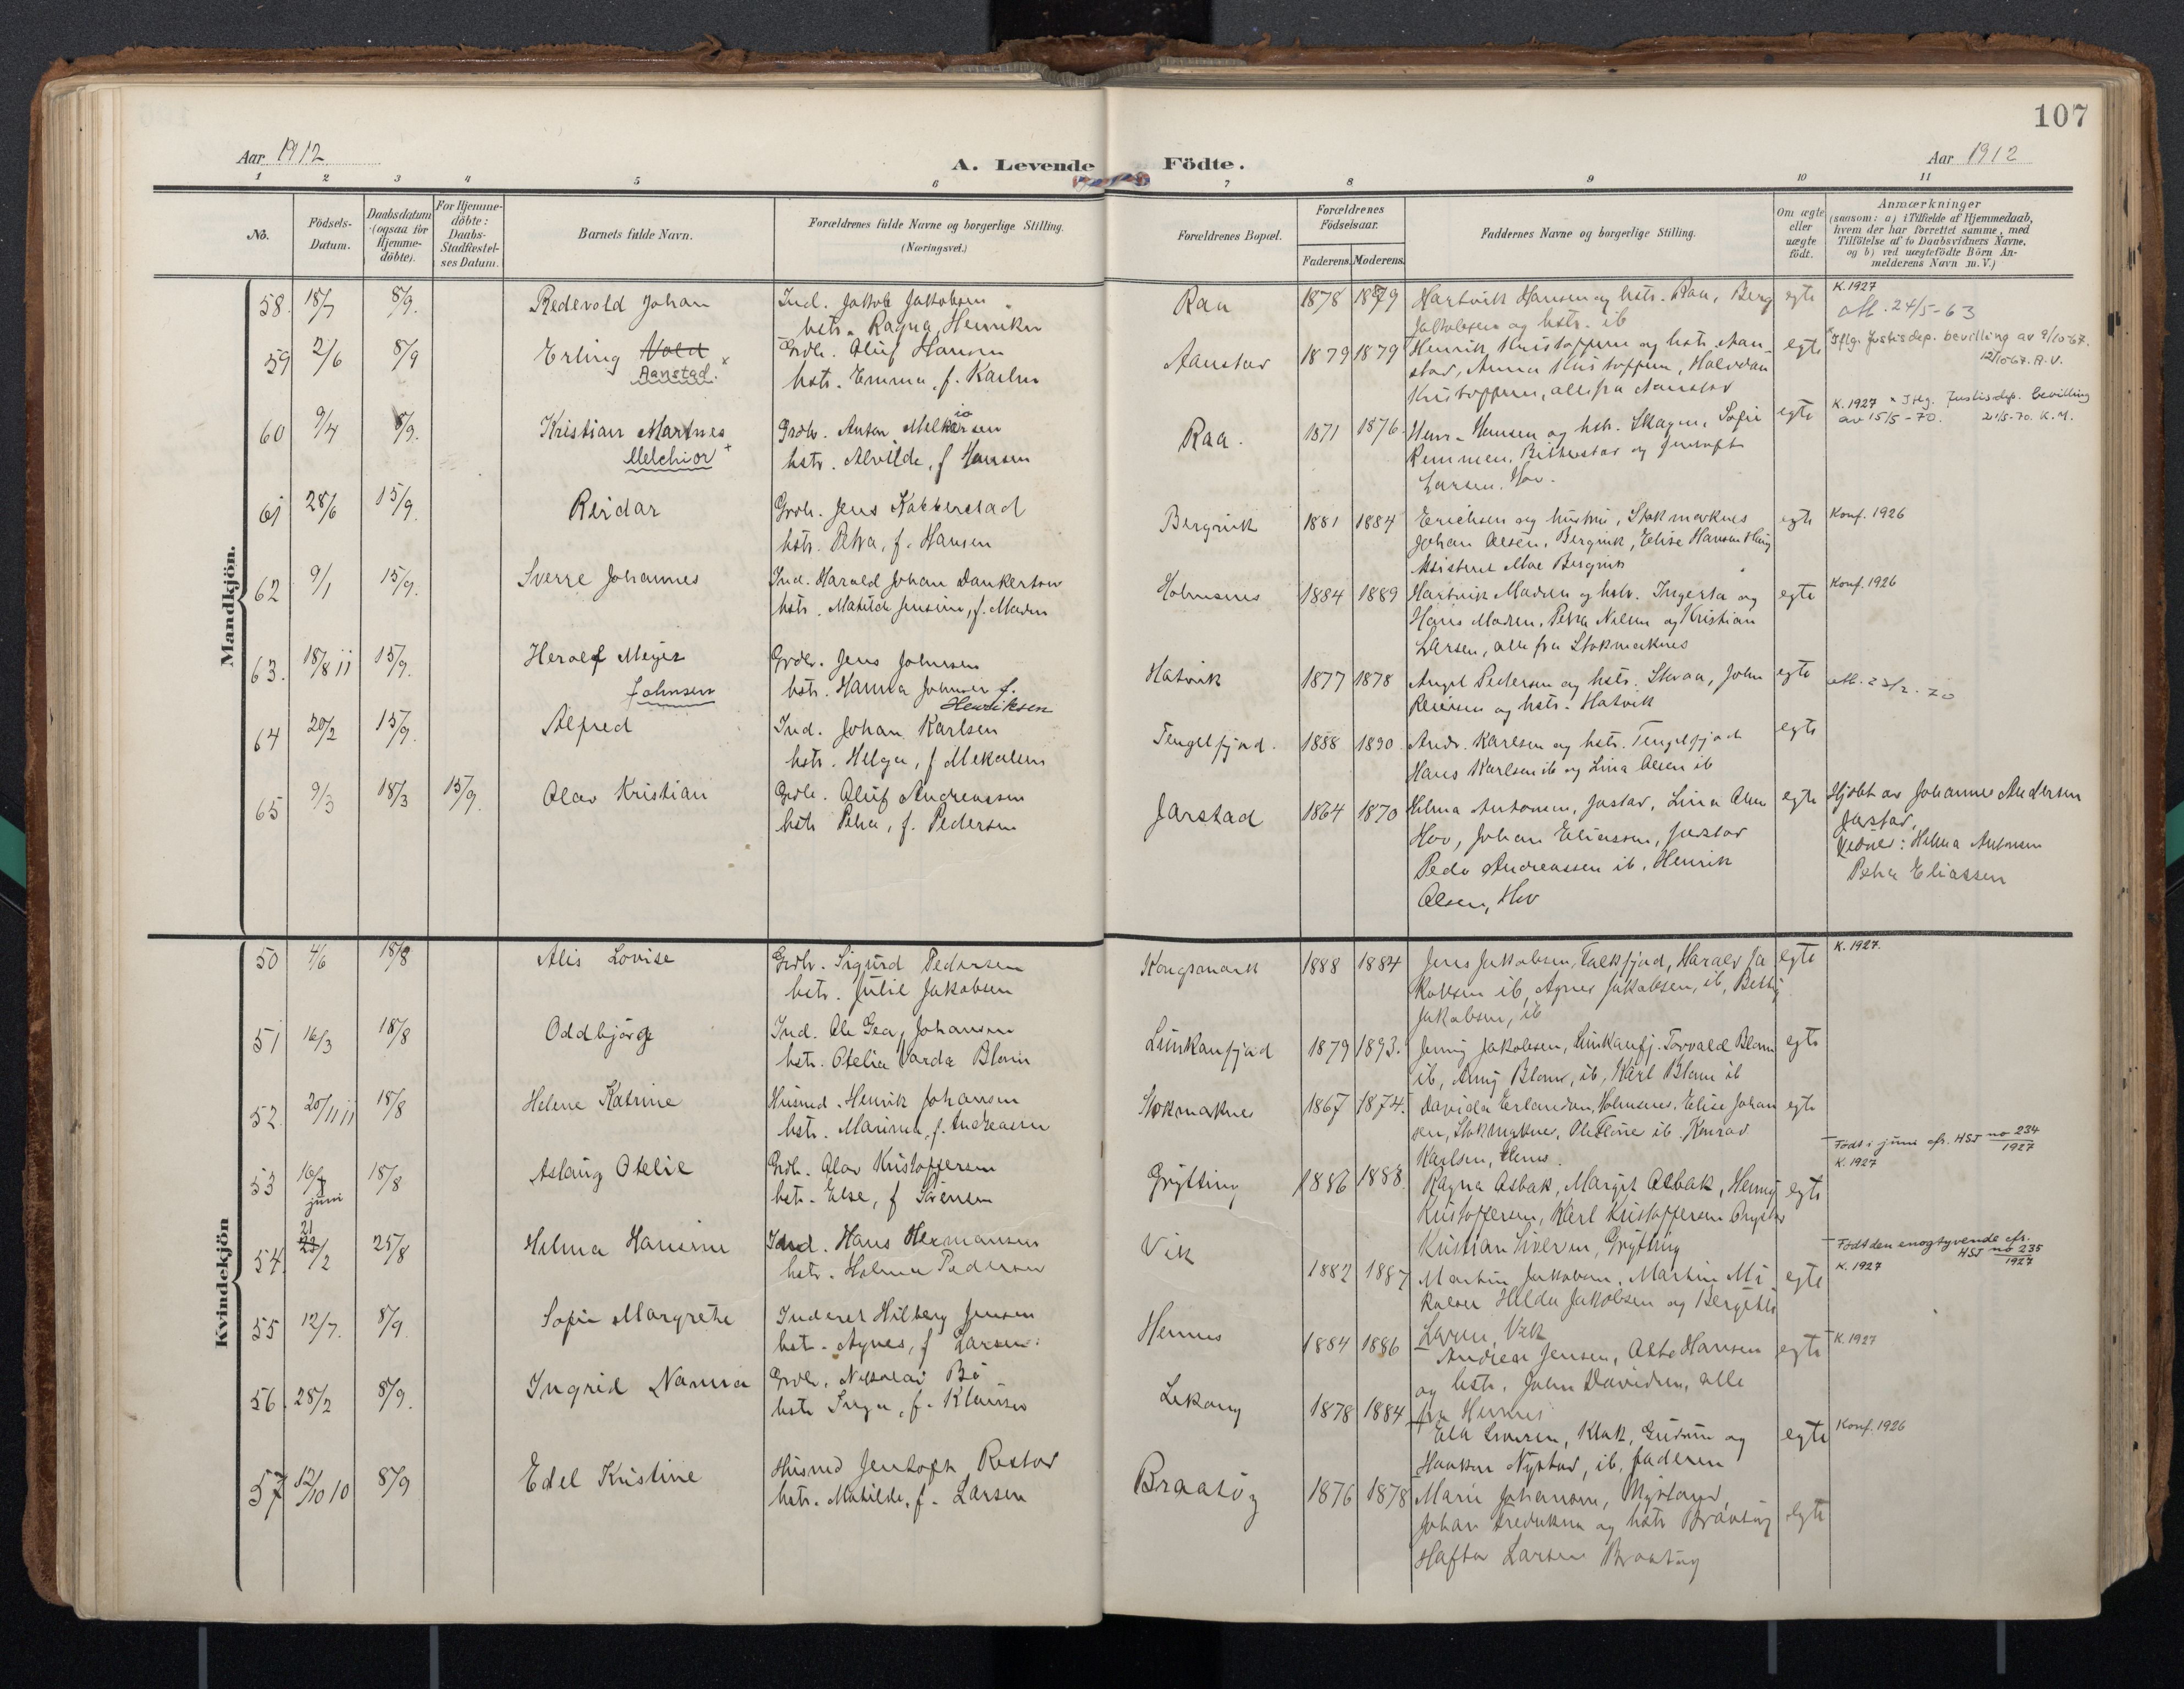 107
Aar 1912
A. Levende Födte.
Aar 1912
1 2 3 4 5 6 7 8 9 10 11
No.
Födsels-Datum.
Daabsdatum (ogsaa for Hjemme-döbte).
For Hjemme-döbte: Daabs-Stadfæstel-ses Datum.
Barnets fulde Navn.
Forældrenes fulde Navne og borgerlige Stilling. (Næringsvei.)
Forældrenes Bopæl.
Forældrenes Födselsaar.
Faderens. Moderens.
Faddernes Navne og borgerlige Stilling.
Om ægte eller uægte födt.
Anmærkninger (saasom: a) i Tilfælde af Hjemmedaab, hvem der har forrettet samme, med Tilföielse af to Daabsvidners Navne, og b) ved uægtefödte Börn An-melderens Navn m. V.)
Mandkjön.
58. 18/7 8/9. Redevold Johan
Ind. Jakob Jakobsen
hstr. Ragna Henrikn
Raa 1878 1879
Hartvik Hansen og hstr. Raa, Berg
Jakobsen og hstr. ib
egte
K. 1927
att. 24/5-63
59 2/6 8/9 Erling Vold
Aanstad. x
Grdb. Oluf Hansen
hstr. Emma, f. Karlsn
Aanstad 1879 1879
Henrik Kristoffersen og hstr. Aan-
stad, Anna Kristoffersen, Halvdan
Kristoffersen, alle fra Aanstad
egte
x Iflg. Justisdep. bevilling av 9/10-67.
12/10-67. A.V.
60 9/4 8/9. Kristian Martnes
Melchior +
Grdbr. Anton Melkiorsen
hstr. Alvilde, f Hansen
Raa. 1871 1876.
Henr. Hansen og hstr. Skagen, Sofie
Remmen, Bitterstad og Jentoft
Larsen, Hov.
egte
K. 1927 x Iflg. Justisdep. bevilling
av 15/5-70. 21/5-70. K.M.
61 28/6 15/9. Reidar
Grdb. Jens Kobberstad
hstr. Petra, f. Hansen
Bergvik 1881 1884
Erichsen og hustru, Stokmarknes
Johan Olsen, Bergvik, Elise Hansen
Moe Bergvik
egte
Konf. 1926
62 9/1 15/9. Sverre Johannes
Ind. Harald Johan Dankertsen
hstr. Matilde Jensine, f. Madsn
Holmsnes 1884 1889
Hartvik Madsen og hstr. Ingerta og
Hans Madsen, Petra Nilsen og Kristian
Larsen, alle fra Stokmarknes
egte
Konf. 1926
63. 18/8 11 15/9. Herolf Meyer
Johnsen
Grdb. Jens Johnsen
hstr. Hanna Johnsen f.
Henriksen
Hatvik 1877 1878
Angel Pedersen og hstr. Skraa, John
Reiersen og hstr. Hatvik
egte
att. 23/2. 70
64 20/2 15/9. Alfred
Ind. Johan Karlsen
hstr. Helga, f Mekalsen
Tengelfjord. 1888 1890
Andr. Karlsen og hstr. Tengelfjord
Hans Karlsen ib og Lina Olsen ib
egte
65 9/3 18/3 15/9. Olav Kristian
Grdb. Oluf Andreassen
hstr Petra, f. Pedersen
Jarstad 1864 1870
Helma Antonsen, Jastad, Lina Olsen
Hov, Johan Eliassen, Jarstad
Peder Andreassen ib, Henrik
Olsen, Hov
egte
Hjdbt av Johannes Andersen
Jarstad,
Vidner: Helma Antonsen
Petra Eliassen
Kvindekjön
50 4/6 18/8 Alis Lovise
Grdbr. Sigurd Pedersen
hstr. Julie Jakobsen
Kongsmark 1888 1884
Jens Jakobsen, Falkfjord, Harald Ja
kobsen ib, Agnes Jakobsen, ib, Betty
Jakobsen, ib
egte
K. 1927.
51 16/3 18/8 Oddbjørg
Ind. Ole Georg Johansen
hstr. Otelia Varda Blom
Lunkanfjord 1879 1893.
Jenny Jakobsen, Lunkanfj. Torvald Blom
ib, Arny Blom, ib, Karl Blom ib
egte
52. 20/11 11 18/8 Helene Katrine
Husmd. Henrik Johansen
hstr. Marina, f. Andreassen
Stokmarknes 1867 1874.
Davida Erlandsen, Holmsnes, Elise Johan
sen, Stokmarknes, Ole ib. Konrad
Karlsen, Hennes.
egte
53 16/7 juni 18/8 Aslaug Otelie
Grdb. Olav Kristoffersen
hstr. Else, f Sörensen
Grytting 1886 1888
Ragna Asbak, Margit Asbak, Henny
Kristoffersen, Karl Kristoffersen
Kristian Siversen, Grytting
egte
Født i juni efr. HSJ no 234
1927
K. 1927
54. 21 23/2 25/8 Helma Hansine
Ind. Hans Hermansen
hstr. Helma Pedersen
Vik 1882 1887
Martin Jakobsen, Martin Mi
kalsen Hilda Jakobsen og Bergitte
Larsen, Vik
egte
Født den enogtyvende efr.
HSJ no 235
1927
K. 1927
55 12/7. 8/9 Sofie Margrethe
Inderst Hilberg Jensen
hst. Agnes, f Larsen
Hennes 1884 1886
Andrea Jensen, Hansen
og hstr. John Davidsen, alle
fra Hennes
egte
K. 1927
56. 28/2 8/9. Ingrid Nanna
Grdb. Nikolai Bö
hstr Inga, f. Klausen
Lekang 1878 1884
Ella Siversen, Klok, Gudrun og
Haakon Nystad, ib, faderen
egte
Konf. 1926
57 12/10 10 8/9 Edel Kristine
Husmd Jentoft Restad
hstr. Mathilde, f. Larsen
Braatöy 1876 1878
Marie Johansen, Myrland,
Johan Fredriksen og hstr Braatöy
Hafton Larsen Braatöy
egte